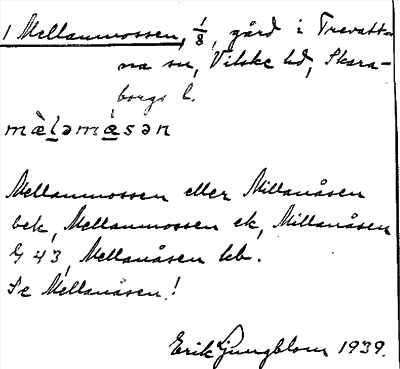 1 Mellanmossen, 1/8, gård i Trevatt-
na sn, Vilske hd, Skara-
borgs l.
mæ̀l̠əmå̠̀sən
Mellanmossen eller Millanåsen
bek, Mellanmossen ek, Millanåsen
G 43, Mellanåsen kb.
Se Mellanåsen!
Erik Ljungblom 1939.